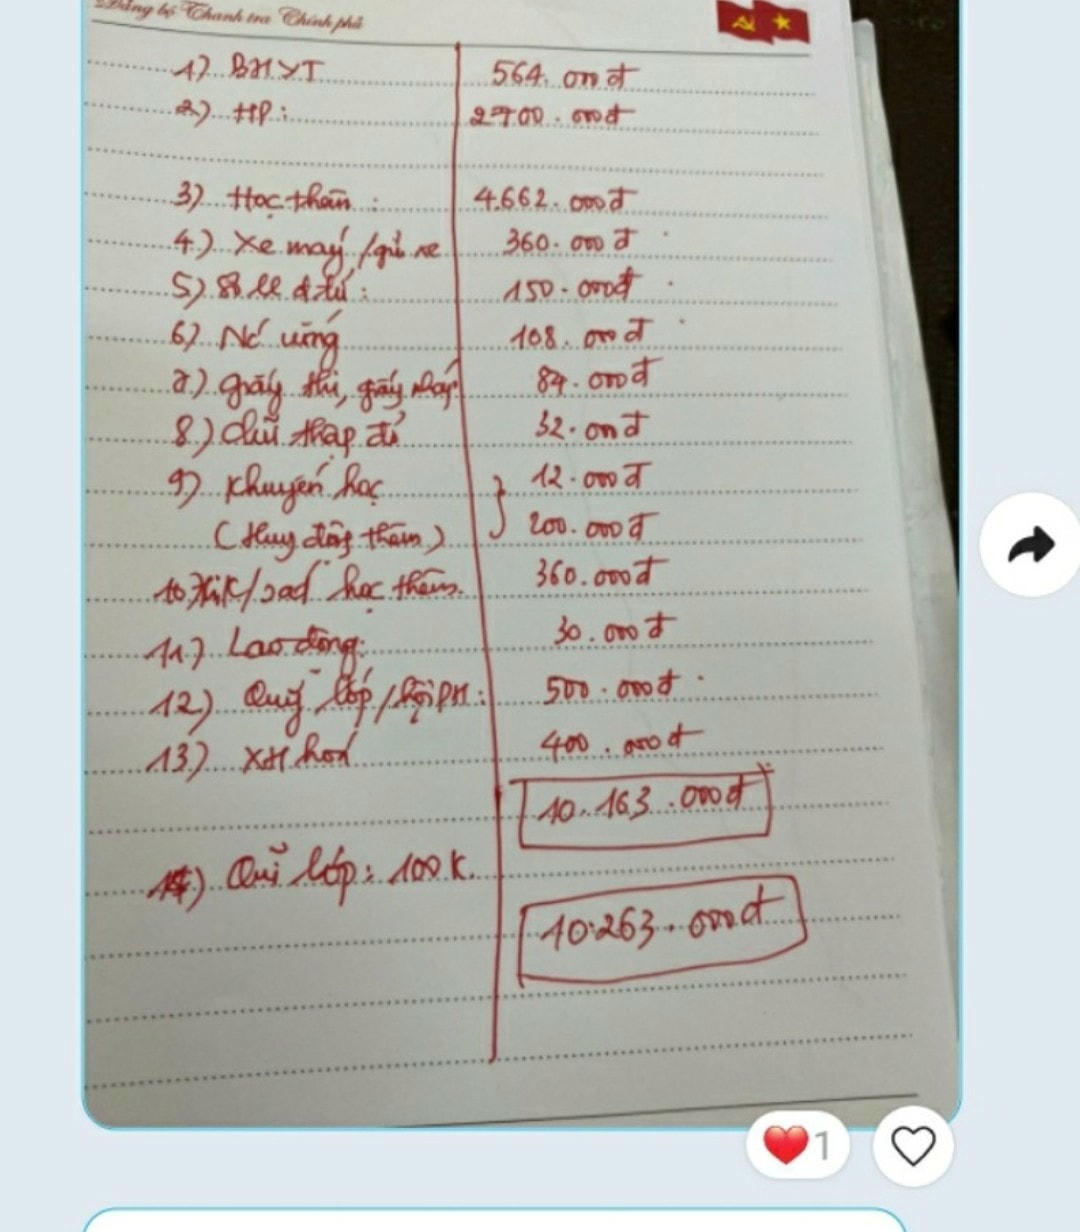 Đảng bộ Thanh tra Chính phủ
1) BHYT 564.000đ
2) HP: 2700.000đ
3) Học thêm: 4.662.000đ
4) Xe máy/gửi xe 360.000đ
5) Sổ LL đ.tử: 150.000đ
6) Nc' uống 108.000đ
7) giấy thi, giấy nháp 84.000đ
8) chữ thập đỏ 32.000đ
9) Khuyến học 12.000đ
(Huy động thêm) 200.000đ
10) học thêm. 360.000đ
11) Lao động: 30.000đ
12) Quỹ lớp/Hội PH: 500.000đ
13) XH hoá 400.000đ
10.163.000đ
14) Quĩ lớp: 100K.
10.263.000đ
1